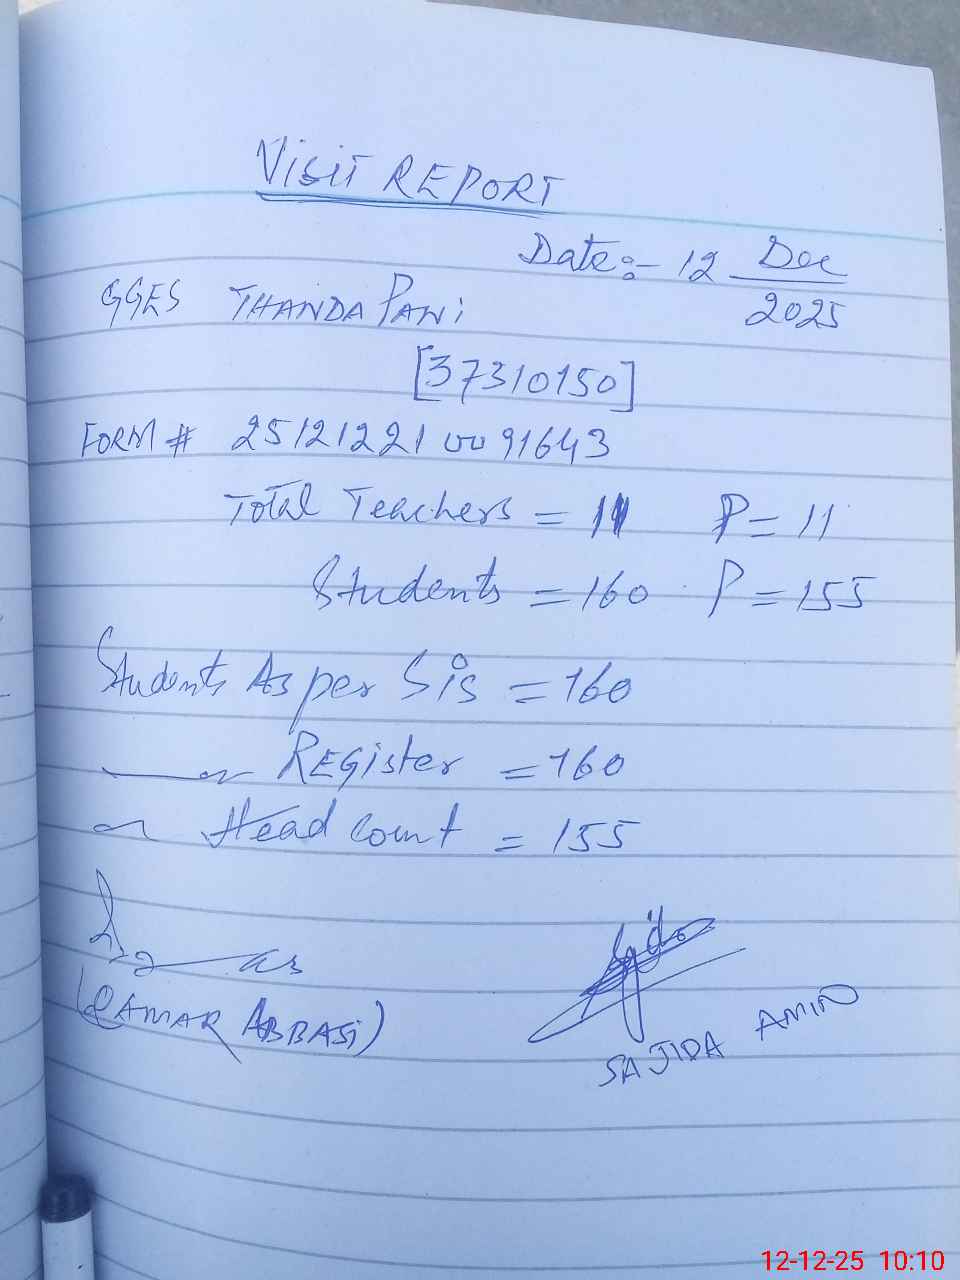 VISIT REPORT
Date:- 12 Dec
2025
GGES THANDA PANI
[37310150]
FORM # 25121221 00 91643
Total Teachers = 11 P = 11
Students = 160 P = 155
Students As per Sis = 160
REGister = 160
Head count = 155
(QAMAR ABBASI)
SAJIDA AMIN
12-12-25 10:10